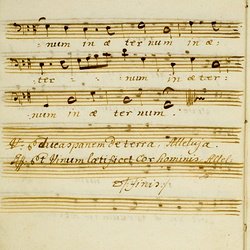 :num in æ ter num in æ:
:ter : num in æ ter:
:num in æ ter num.
V. educas panem de terra. Alleluja.
Et Vinum lætificet Cor hominis. Allel.
Finis